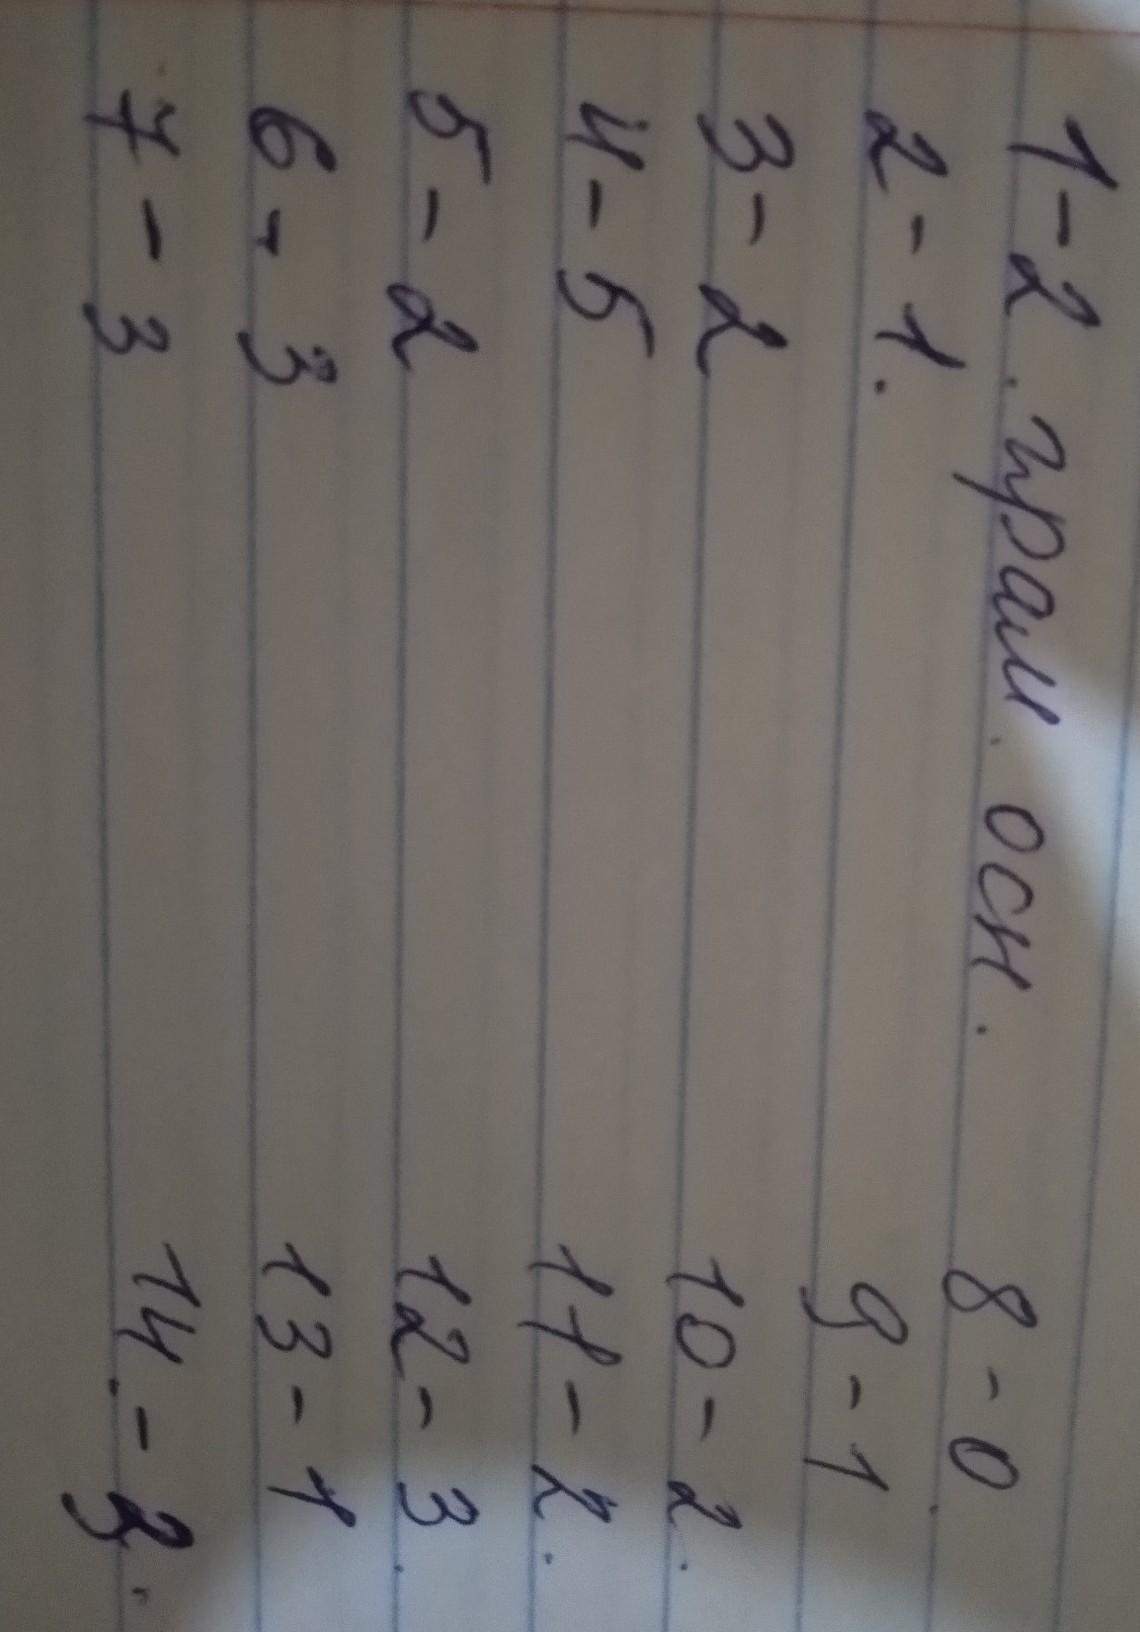 1-2. грам. осн.
2-1.
3-2
4-5
5-2
6-3
7-3
8-0.
9-1
10-2.
11-2.
12-3.
13-1
14.-3.